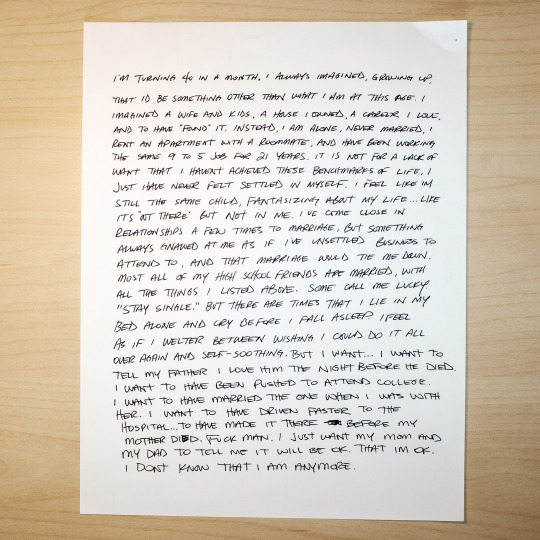 I'M TURNING 40 IN A MONTH. I ALWAYS IMAGINED, GROWING UP,
THAT I'D BE SOMETHING OTHER THAN WHAT I AM AT THIS AGE. I
IMAGINED A WIFE AND KIDS, A HOUSE I OWNED, A CAREER I LOVE,
AND TO HAVE "FOUND" IT. INSTEAD, I AM ALONE, NEVER MARRIED, I
RENT AN APARTMENT WITH A ROOMMATE, AND HAVE BEEN WORKING
THE SAME 9 TO 5 JOB FOR 21 YEARS. IT IS NOT FOR A LACK OF
WANT THAT I HAVEN'T ACHIEVED THESE BENCHMARKS OF LIFE, I
JUST HAVE NEVER FELT SETTLED IN MYSELF. I FEEL LIKE IM
STILL THE SAME CHILD, FANTASIZING ABOUT MY LIFE... LIKE
ITS "OUT THERE" BUT NOT IN ME. I'VE COME CLOSE IN
RELATIONSHIPS A FEW TIMES TO MARRIAGE, BUT SOMETHING
ALWAYS GNAWED AT ME AS IF I'VE UNSETTLED BUSINESS TO
ATTEND TO, AND THAT MARRIAGE WOULD TIE ME DOWN.
MOST ALL OF MY HIGH SCHOOL FRIENDS ARE MARRIED, WITH
ALL THE THINGS I LISTED ABOVE. SOME CALL ME LUCKY.
"STAY SINGLE." BUT THERE ARE TIMES THAT I LIE IN MY
BED ALONE AND CRY BEFORE I FALL ASLEEP. I FEEL
AS IF I WELTER BETWEEN WISHING I COULD DO IT ALL
OVER AGAIN AND SELF-SOOTHING. BUT I WANT... I WANT TO
TELL MY FATHER I LOVE HIM THE NIGHT BEFORE HE DIED.
I WANT TO HAVE BEEN PUSHED TO ATTEND COLLEGE.
I WANT TO HAVE MARRIED THE ONE WHEN I WAS WITH
HER. I WANT TO HAVE DRIVEN FASTER TO THE
HOSPITAL... TO HAVE MADE IT THERE BEFORE MY
MOTHER DIED. FUCK MAN. I JUST WANT MY MOM AND
MY DAD TO TELL ME IT WILL BE OK. THAT IM OK.
I DON'T KNOW THAT I AM ANYMORE.